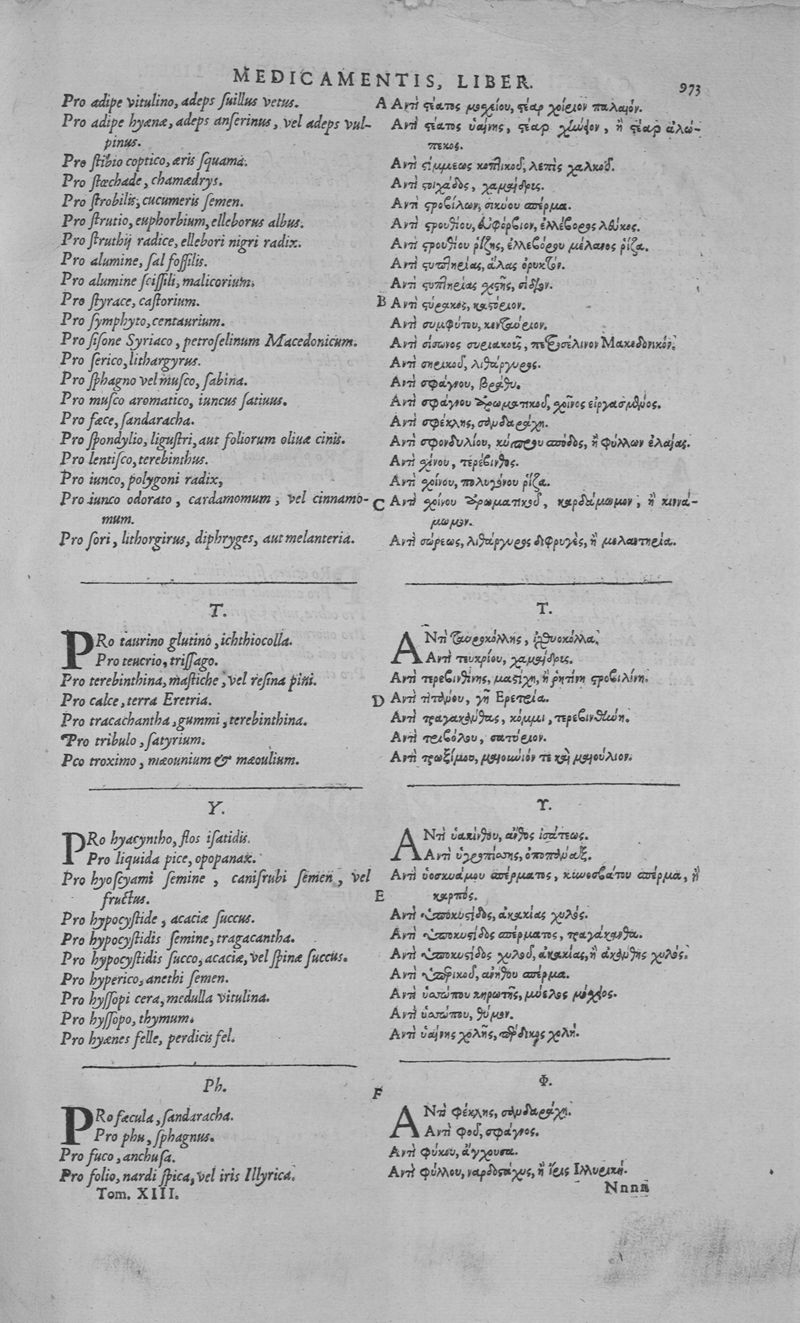 MEDICAMENTIS, LIBER. 973
Pro adipe vitulino, adeps ſuillus vetus.
Pro adipe hyænæ, adeps anſerinus, vel adeps vul-
pinus.
Pro ſtibio coptico, æris ſquama.
Pro ſtœchade, chamædrys.
Pro ſtrobilis, cucumeris ſemen.
Pro ſtrutio, euphorbium, elleborus albus.
Pro ſtruthij radice, ellebori nigri radix.
Pro alumine, ſal foſſilis.
Pro alumine ſciſſili, malicorium.
Pro ſtyrace, caſtorium.
Pro ſymphyto, centaurium.
Pro ſiſone Syriaco, petroſelinum Macedonicum.
Pro ſerico, lithargyrus.
Pro ſphagno vel muſco, ſabina.
Pro muſco aromatico, iuncus ſatiuus.
Pro fæce, ſandaracha.
Pro ſpondylio, liguſtri, aut foliorum oliuæ cinis.
Pro lentiſco, terebinthus.
Pro iunco, polygoni radix,
Pro iunco odorato, cardamomum, vel cinnamo-
mum.
Pro ſori, lithorgirus, diphryges, aut melanteria.
T.
PRo taurino glutino, ichthiocolla.
Pro teucrio, triſſago.
Pro terebinthina, maſtiche, vel reſina pini.
Pro calce, terra Eretria.
Pro tracachantha, gummi, terebinthina.
Pro tribulo, ſatyrium.
Pco troximo, mæounium & mæoulium.
Y.
PRo hyacyntho, flos iſatidis.
Pro liquida pice, opopanax.
Pro hyoſcyami ſemine, caniſrubi ſemen, vel
fructus.
Pro hypocyſtide, acaciæ ſuccus.
Pro hypocyſtidis ſemine, tragacantha.
Pro hypocyſtidis ſucco, acaciæ, vel ſpinæ ſuccus.
Pro hyperico, anethi ſemen.
Pro hyſſopi cera, medulla vitulina.
Pro hyſſopo, thymum.
Pro hyænes felle, perdicis fel.
Ph.
PRo fæcula, ſandaracha.
Pro phu, ſphagnus.
Pro fuco, anchuſa.
Pro folio, nardi ſpica, vel iris Illyrica.
Tom. XIII.
A Ἀντὶ στέατος μοσχείου, στέαρ χοίρειον παλαιόν.
Ἀντὶ στέατος ὑαίνης, στέαρ χήνειον, ἢ στέαρ ἀλώ-
πεκος.
Ἀντὶ στίμμεως κοπτικοῦ, λεπὶς χαλκοῦ.
Ἀντὶ στοιχάδος, χαμαίδρις.
Ἀντὶ στροβίλων, σικύου σπέρμα.
Ἀντὶ στρουθίου, εὐφόρβιον, ἐλλέβορος λευκός.
Ἀντὶ στρουθίου ῥίζης, ἐλλεβόρου μέλανος ῥίζα.
Ἀντὶ στυπτηρίας, ἅλας ὀρυκτόν.
Ἀντὶ στυπτηρίας σχιστῆς, σίδιον.
B Ἀντὶ στύρακος, καστόριον.
Ἀντὶ συμφύτου, κενταύριον.
Ἀντὶ σίσωνος συριακοῦ, πετροσέλινον Μακεδονικόν.
Ἀντὶ σηρικοῦ, λιθάργυρος.
Ἀντὶ σφάγνου, βράθυ.
Ἀντὶ σφάγνου ἀρωματικοῦ, σχοῖνος εἰργασμένος.
Ἀντὶ σφέκλης, σανδαράχη.
Ἀντὶ σφονδυλίου, κύπρου σποδός, ἢ φύλλων ἐλαίας.
Ἀντὶ σχίνου, τερέβινθος.
Ἀντὶ σχοίνου, πολυγόνου ῥίζα.
C Ἀντὶ σχοίνου ἀρωματικοῦ, καρδάμωμον, ἢ κιννά-
μωμον.
Ἀντὶ σώρεως, λιθάργυρος διφρυγὲς, ἢ μελαντηρία.
Τ.
ΑΝτὶ ταυροκόλλης, ἰχθυοκόλλα.
Ἀντὶ τευκρίου, χαμαίδρις.
Ἀντὶ τερεβινθίνης, μαστίχη, ἢ ῥητίνη στροβιλίνη.
D Ἀντὶ τιτάνου, γῆ Ερετρία.
Ἀντὶ τραγακάνθας, κόμμι, τερεβινθίνη.
Ἀντὶ τριβόλου, σατύριον.
Ἀντὶ τρωξίμου, μαιουνιόν τε καὶ μαιούλιον.
Υ.
ΑΝτὶ ὑακίνθου, ἄνθος ἰσάτεως.
Ἀντὶ ὑγροπίσσης, ὀποπάναξ.
Ἀντὶ ὑοσκυάμου σπέρματος, κυνοσβάτου σπέρμα, ἢ
E καρπός.
Ἀντὶ ὑποκυστίδος, ἀκακίας χυλός.
Ἀντὶ ὑποκυστίδος σπέρματος, τραγάκανθα.
Ἀντὶ ὑποκυστίδος χυλοῦ, ἀκακίας, ἢ ἀκάνθης χυλός.
Ἀντὶ ὑπερικοῦ, ἀνήθου σπέρμα.
Ἀντὶ ὑσσώπου κηρωτῆς, μύελος μόσχιος.
Ἀντὶ ὑσσώπου, θύμον.
Ἀντὶ ὑαίνης χολῆς, πέρδικος χολή.
F
Φ.
ΑΝτὶ φέκλης, σανδαράχη.
Ἀντὶ φοῦ, σφάγνος.
Ἀντὶ φύκου, ἄγχουσα.
Ἀντὶ φύλλου, ναρδοστάχυς, ἢ ἶρις Ιλλυρική.
Nnnn